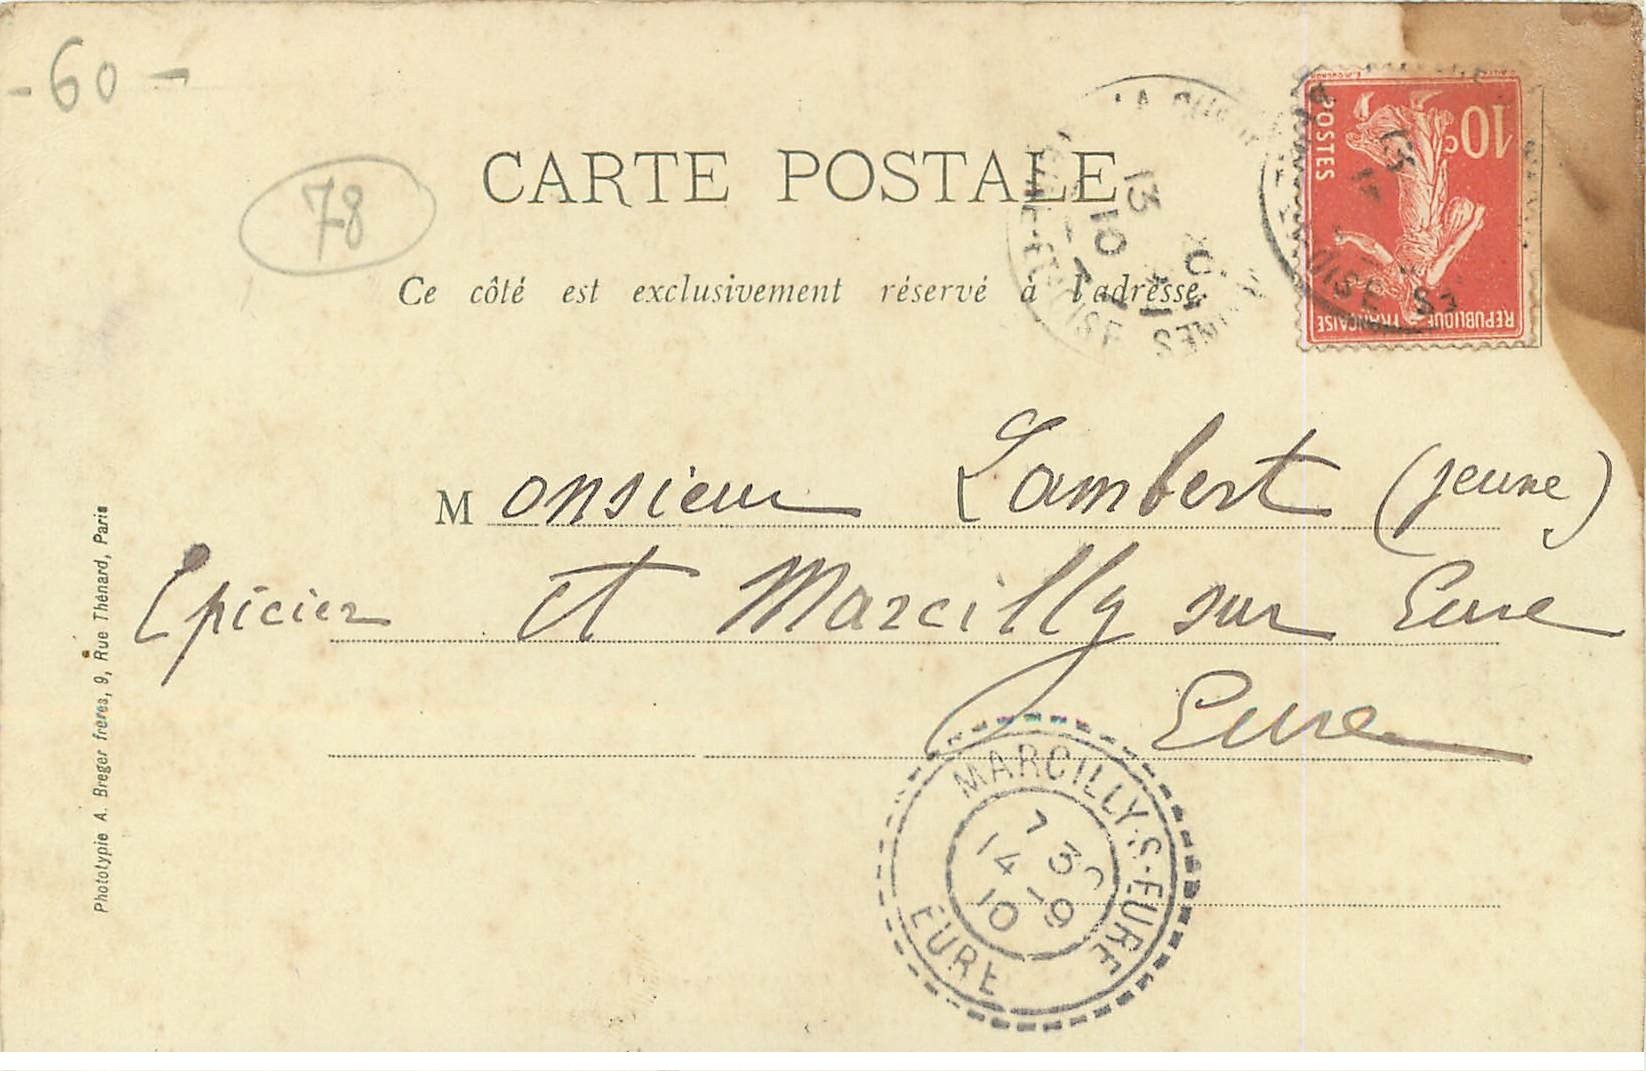 - 60 -
78
CARTE POSTALE
Ce côté est exclusivement réservé à l'adresse.
10c
POSTES
REPUBLIQUE FRANÇAISE
13
10
SEINE-ET-OISE
Monsieur Lambert (jeune)
Epicier et Marcilly sur Eure
Eure
MARCILLY-S-EURE
7 30
14-9
10
EURE
Phototypie A. Breger frères, 9, Rue Thénard, Paris